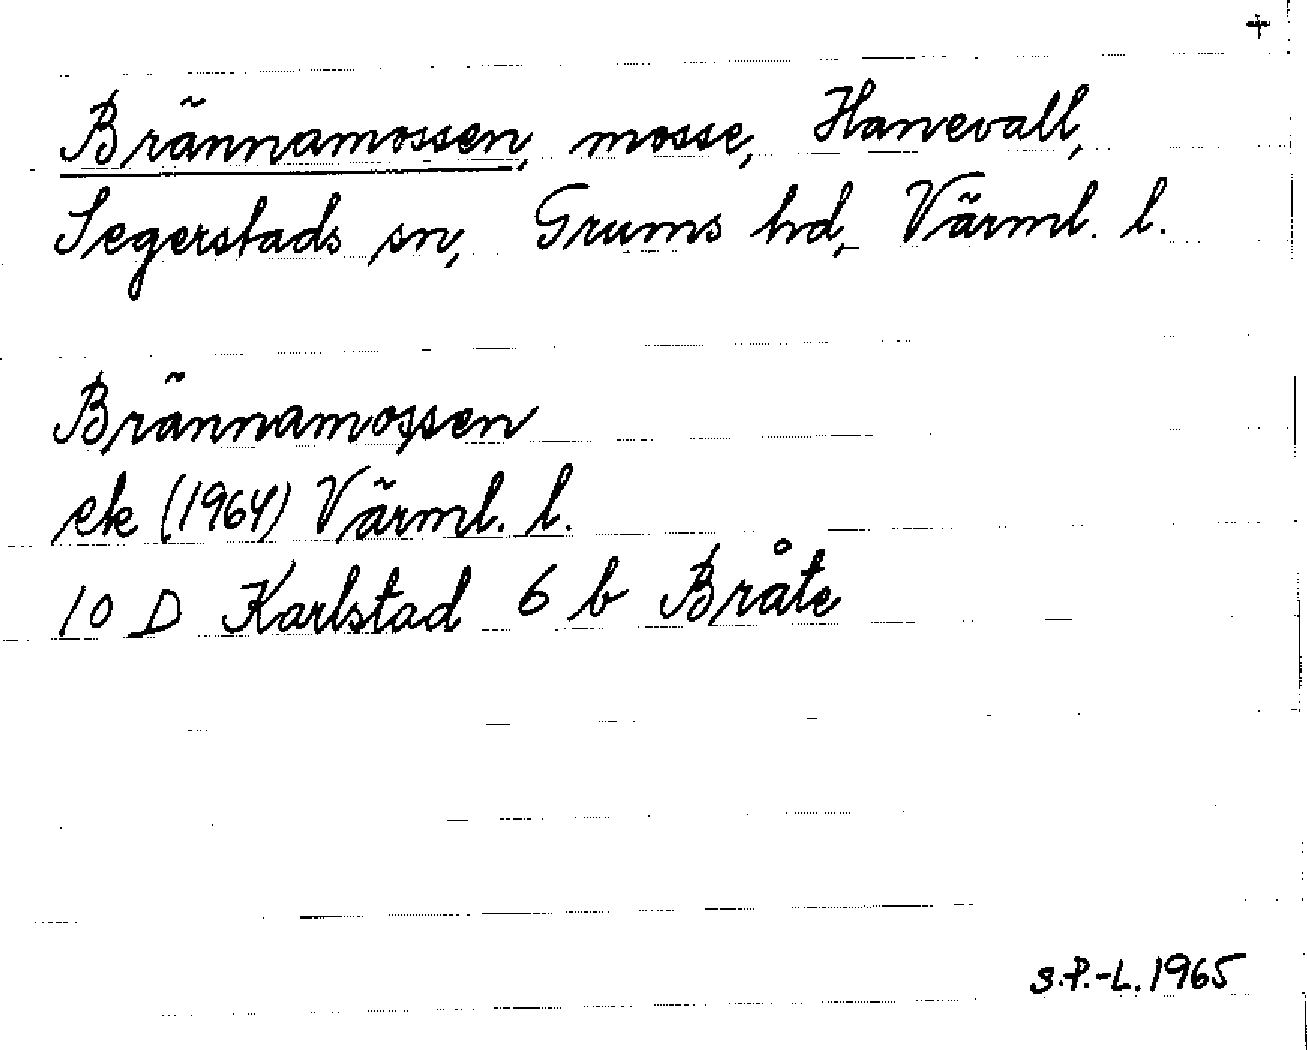 +
Brännamossen, mosse, Hanevall,
Segerstads sn, Grums hd, Värml. l.
Brännamossen
ek (1964) Värml. l.
10 D Karlstad 6 b Bråte
S.P.-L. 1965